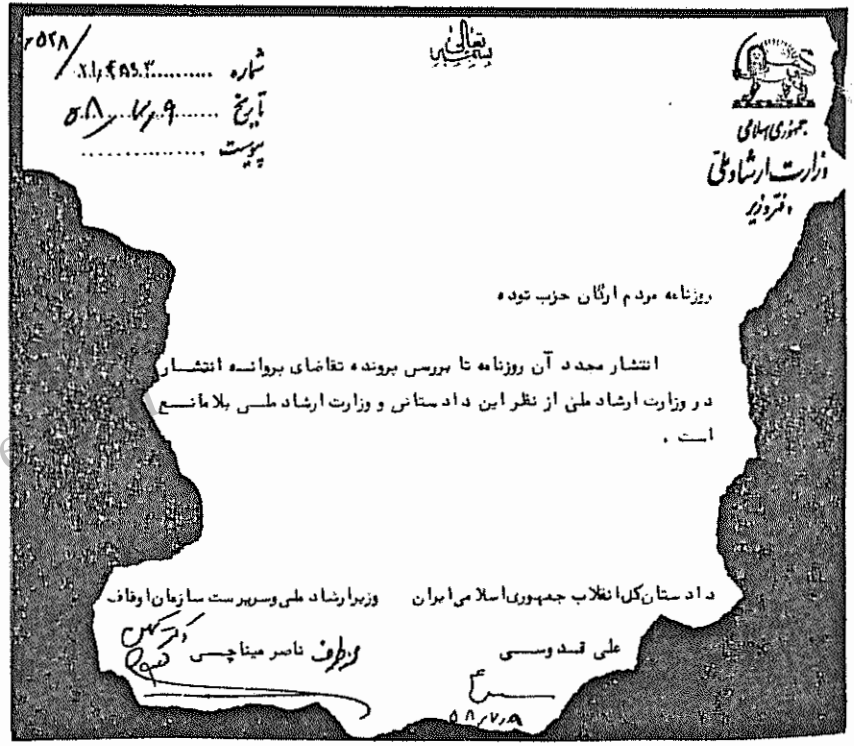 بسمه تعالی
جمهوری اسلامی
وزارت ارشاد ملی
دفتر وزیر
شماره
تاریخ ۵۸/۷/۹
پیوست
روزنامه مردم ارگان حزب توده
انتشار مجدد آن روزنامه تا بررسی پرونده تقاضای پروانه انتشار
در وزارت ارشاد ملی از نظر این دادستانی و وزارت ارشاد ملی بلامانع
است .
دادستان کل انقلاب جمهوری اسلامی ایران
علی قدوسی
۵۸/۷/۸
وزیر ارشاد ملی و سرپرست سازمان اوقاف
از طرف ناصر میناچی